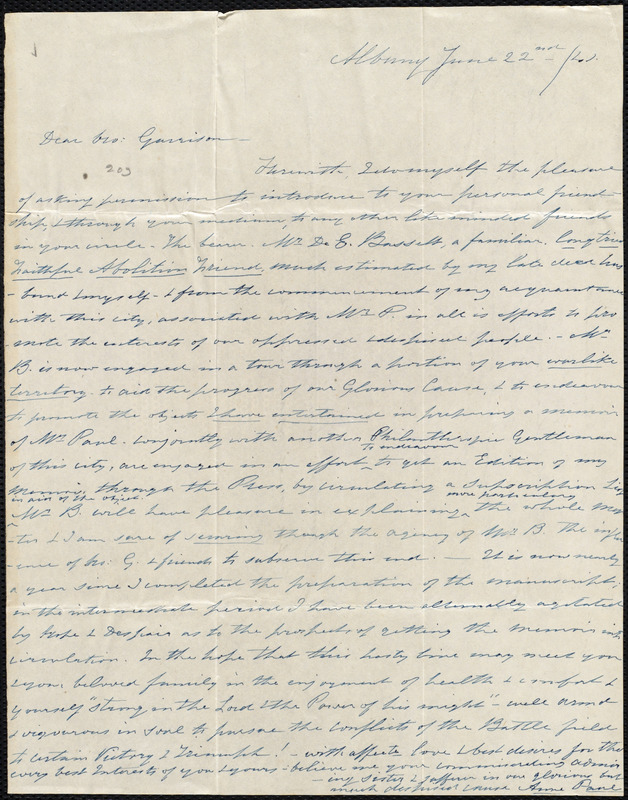 Albany June 22nd /41.
Dear bro: Garrison –
209
Herewith, I do myself the pleasure
of asking permission to introduce to your personal friend-
ship, & through your medium, to any other like minded friends
in your circle – The bearer, Mr. De E. Bassett, a familiar, longtried
Faithful Abolition Friend, much estimated by my late decd hus
-band & myself – & from the commencement of my acquaintance
with this city, associated with Mr. P. in all is efforts to pro
-mote the interests of our oppressed & despised people. – Mr.
B. is now engaged in a tour through a portion of your warlike
territory to aid the progress of our Glorious Cause, & to endeavour
to promote the objects I have entertained in preparing a memoir
of Mr. Paul. conjointly with another Philanthropic Gentleman
of this city, are engaged in an effort to endeavour to get an Edition of my
Memoir, through the Press, by circulating a Subscription
in aid of the object. more particularly
Mr. B. will have pleasure in explaining the whole mat
-ter & I am sure of securing though the agency of Mr. B. The influ
-ence of bro: G. & friends to subserve this end. – It is now nearly
a year since I completed the preparation of the manuscript;
in the intermediate period I have been alternally agitated
by Hope & Despair as to the prospects of getting the memoir into
circulation. In the hope that this hasty line may meet you
& your beloved family in the enjoyment of health & comfort &
yourself "strong in the Lord & the Power of his might" – well armd
& vigourous in soul to pursue the conflicts of the Battle field
to certain Victory & Triumph! – with affecte love & best desires for the
very best Interests of you & yours – believe me your commiserating admir
-ing Sister & sufferer in our glorious but
much despised cause Anne Paul